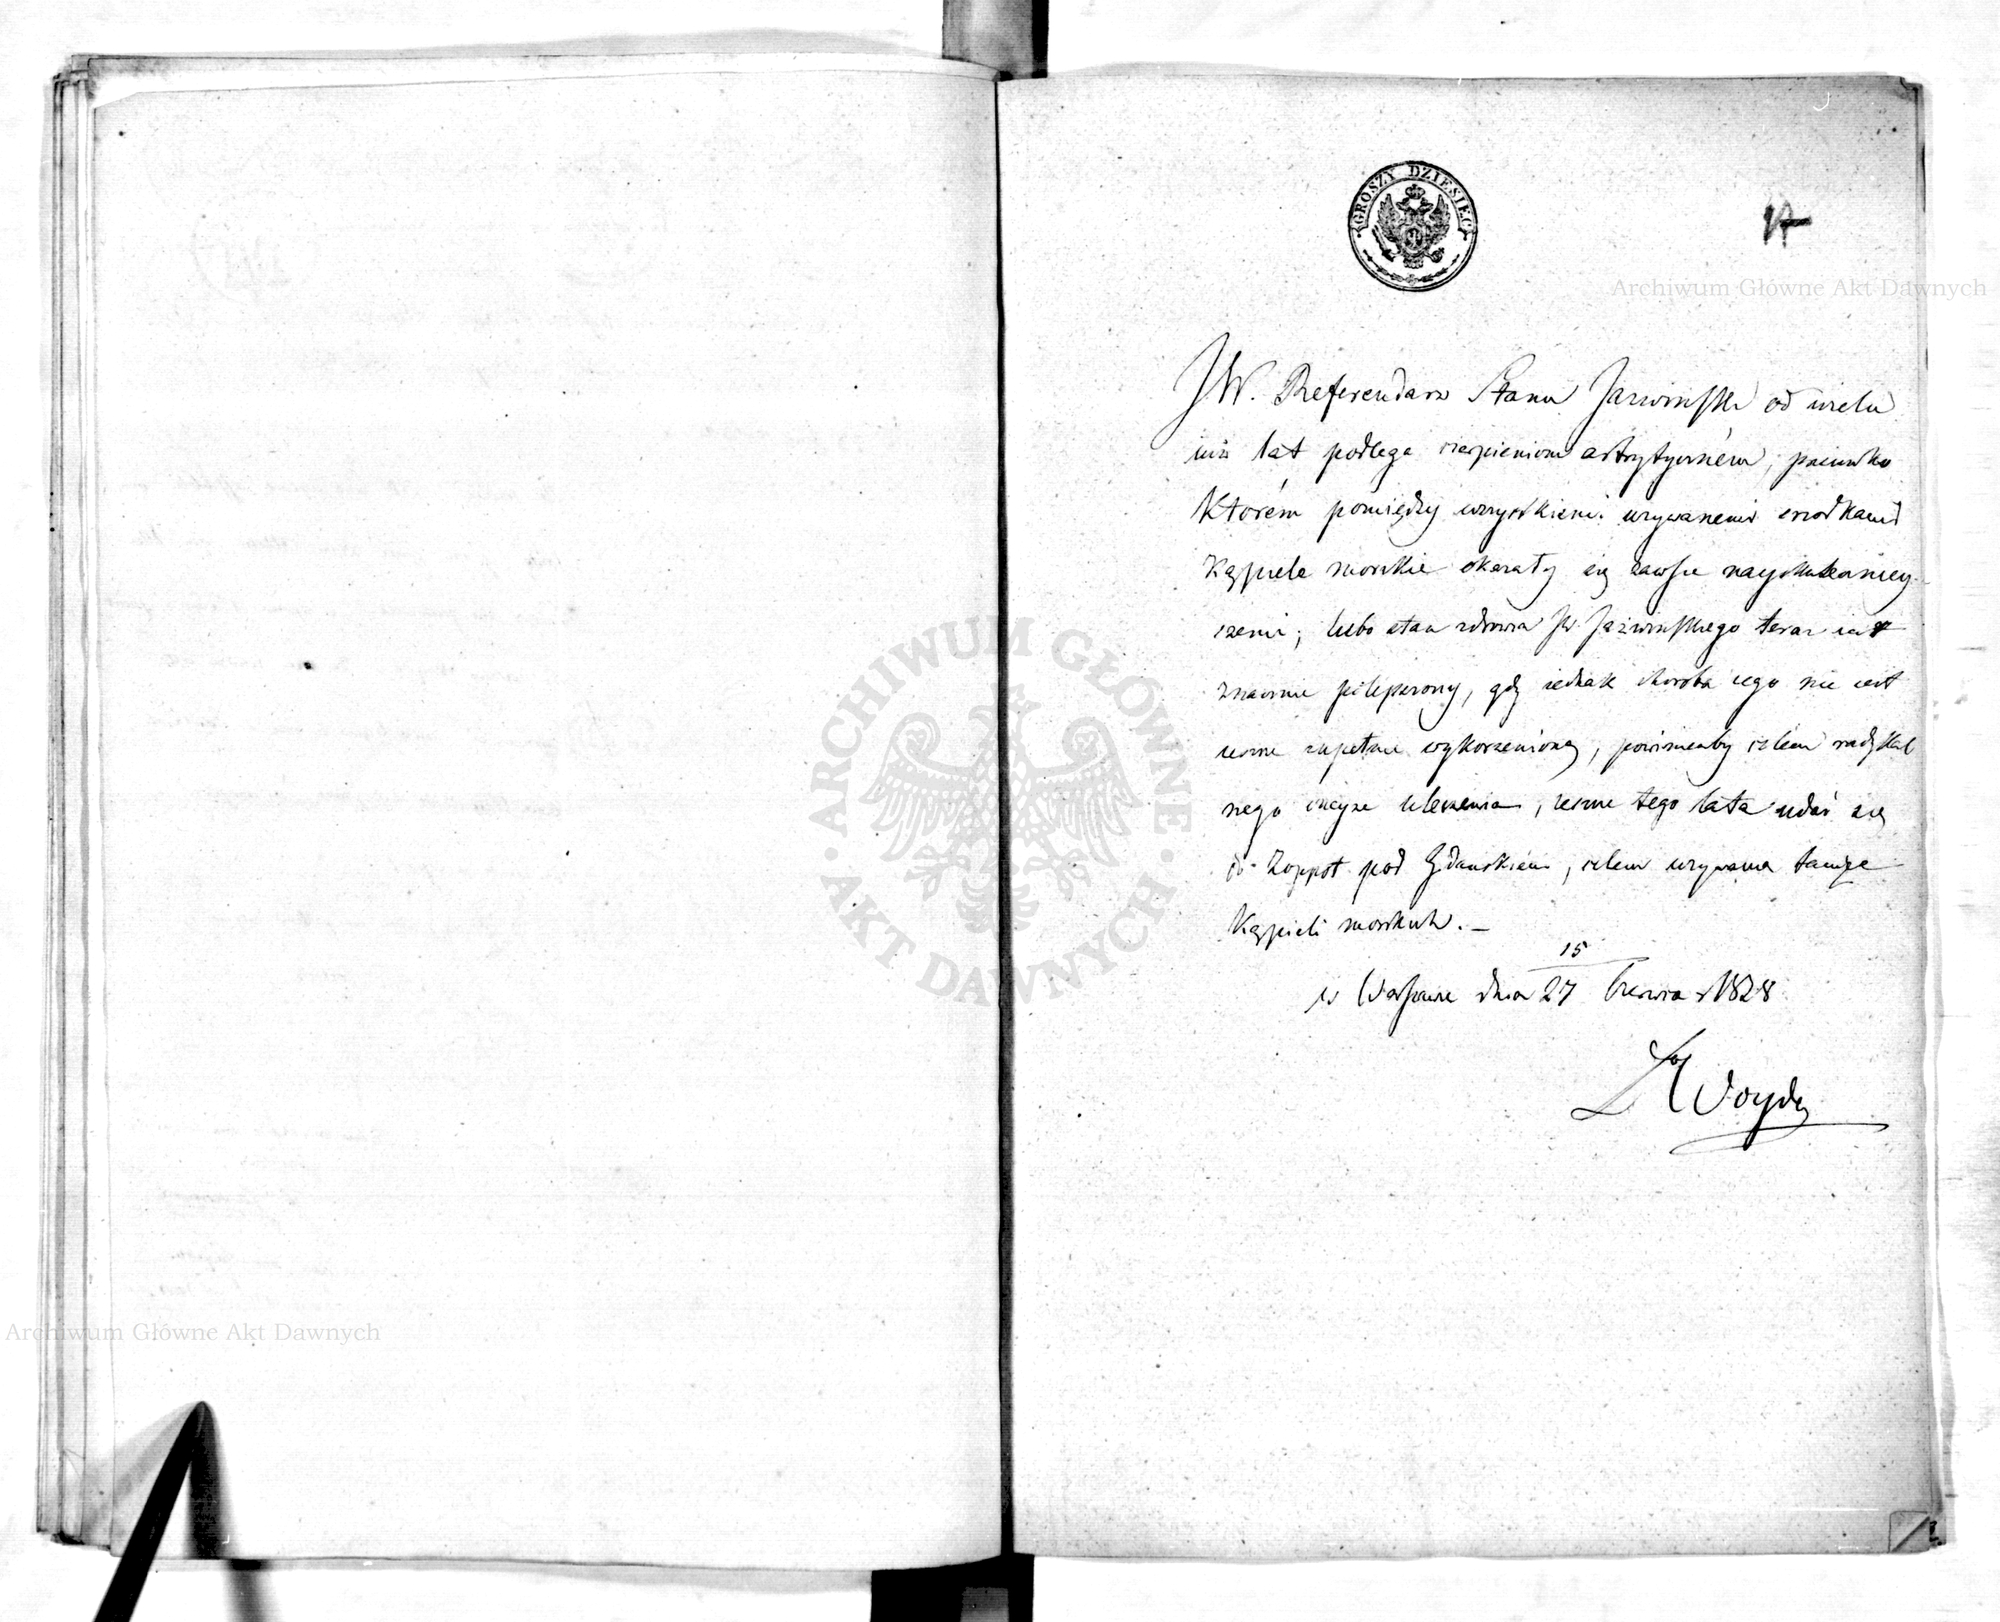 GROSZY DZIESIĘĆ
17
JW. Referendarz Stanu Jazwiński od wielu
iuż lat podlega cierpieniom artrytycznem, przeciwko
którém pomiędzy wszystkiemi używanemi srodkami
kąpiele morskie okazały się zawsze nayskuteczniey-
szemi; lubo stan zdrowia JW. Jaźwińskiego teraz iest
znacznie polepszony, gdy iednak choroba iego nie iest
ieszcze zupełnie wykorzenioną, powinienby celem radykal
nego onéyże uleczenia, ieszcze tego lata udać się
do Zoppot pod Gdańskiem, celem używania tamże
kąpieli morskich. —
w Warszawie dnia 15/27 Czerwca r 1828
Woyde
Archiwum Główne Akt Dawnych
ARCHIWUM GŁÓWNE
AKT DAWNYCH
Archiwum Główne Akt Dawnych